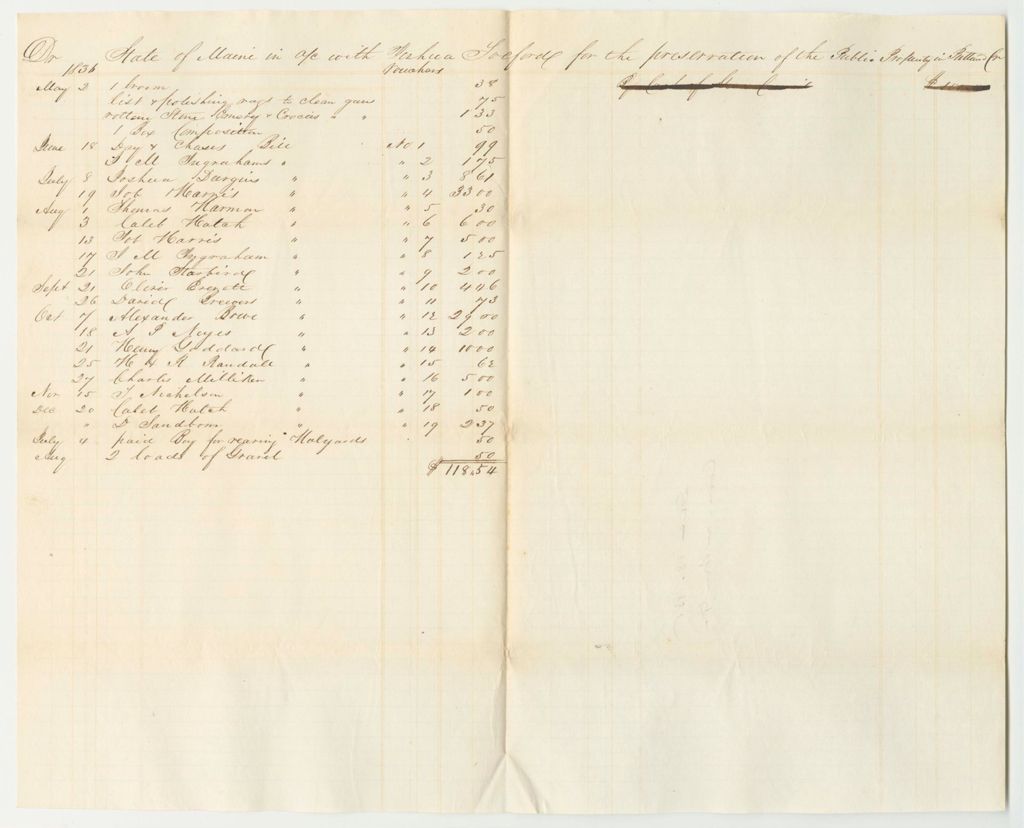 Dr State of Maine in a/c with Joshua for the preservation of the Public Property in Co
1836 Vouchers
May 2 1 broom 38
list & polishing rags to clean guns 75
rotten Stone Emery & Crocus " " 1 33
1 Box Composition 50
June 18 Day & Chases Bill No 1 99
J M Ingrahams " " 2 1 75
July 8 Joshua Dargins " " 3 8 61
19 Job Harris " " 4 33 00
Aug 1 Thomas Harmon " " 5 30
3 Caleb Hatch " " 6 6 00
13 Job Harris " " 7 5 00
17 J M Ingraham " " 8 1 25
21 John " " 9 2 00
Sept 21 Oliver " " 10 4 46
26 David " " 11 73
Oct 7 Alexander " " 12 29 00
18 A P Noyes " " 13 2 00
21 Henry Goddard " " 14 10 00
25 H & R Randall " " 15 62
27 Charles Milliken " " 16 5 00
Nov 15 J Nichelson " " 17 1 00
Dec 20 Caleb Hatch " " 18 50
" D Sandborn " " 19 2 37
July 4 paid Boy for reaving Halyards 50
Aug 2 loads of Gravel 50
$ 118.54